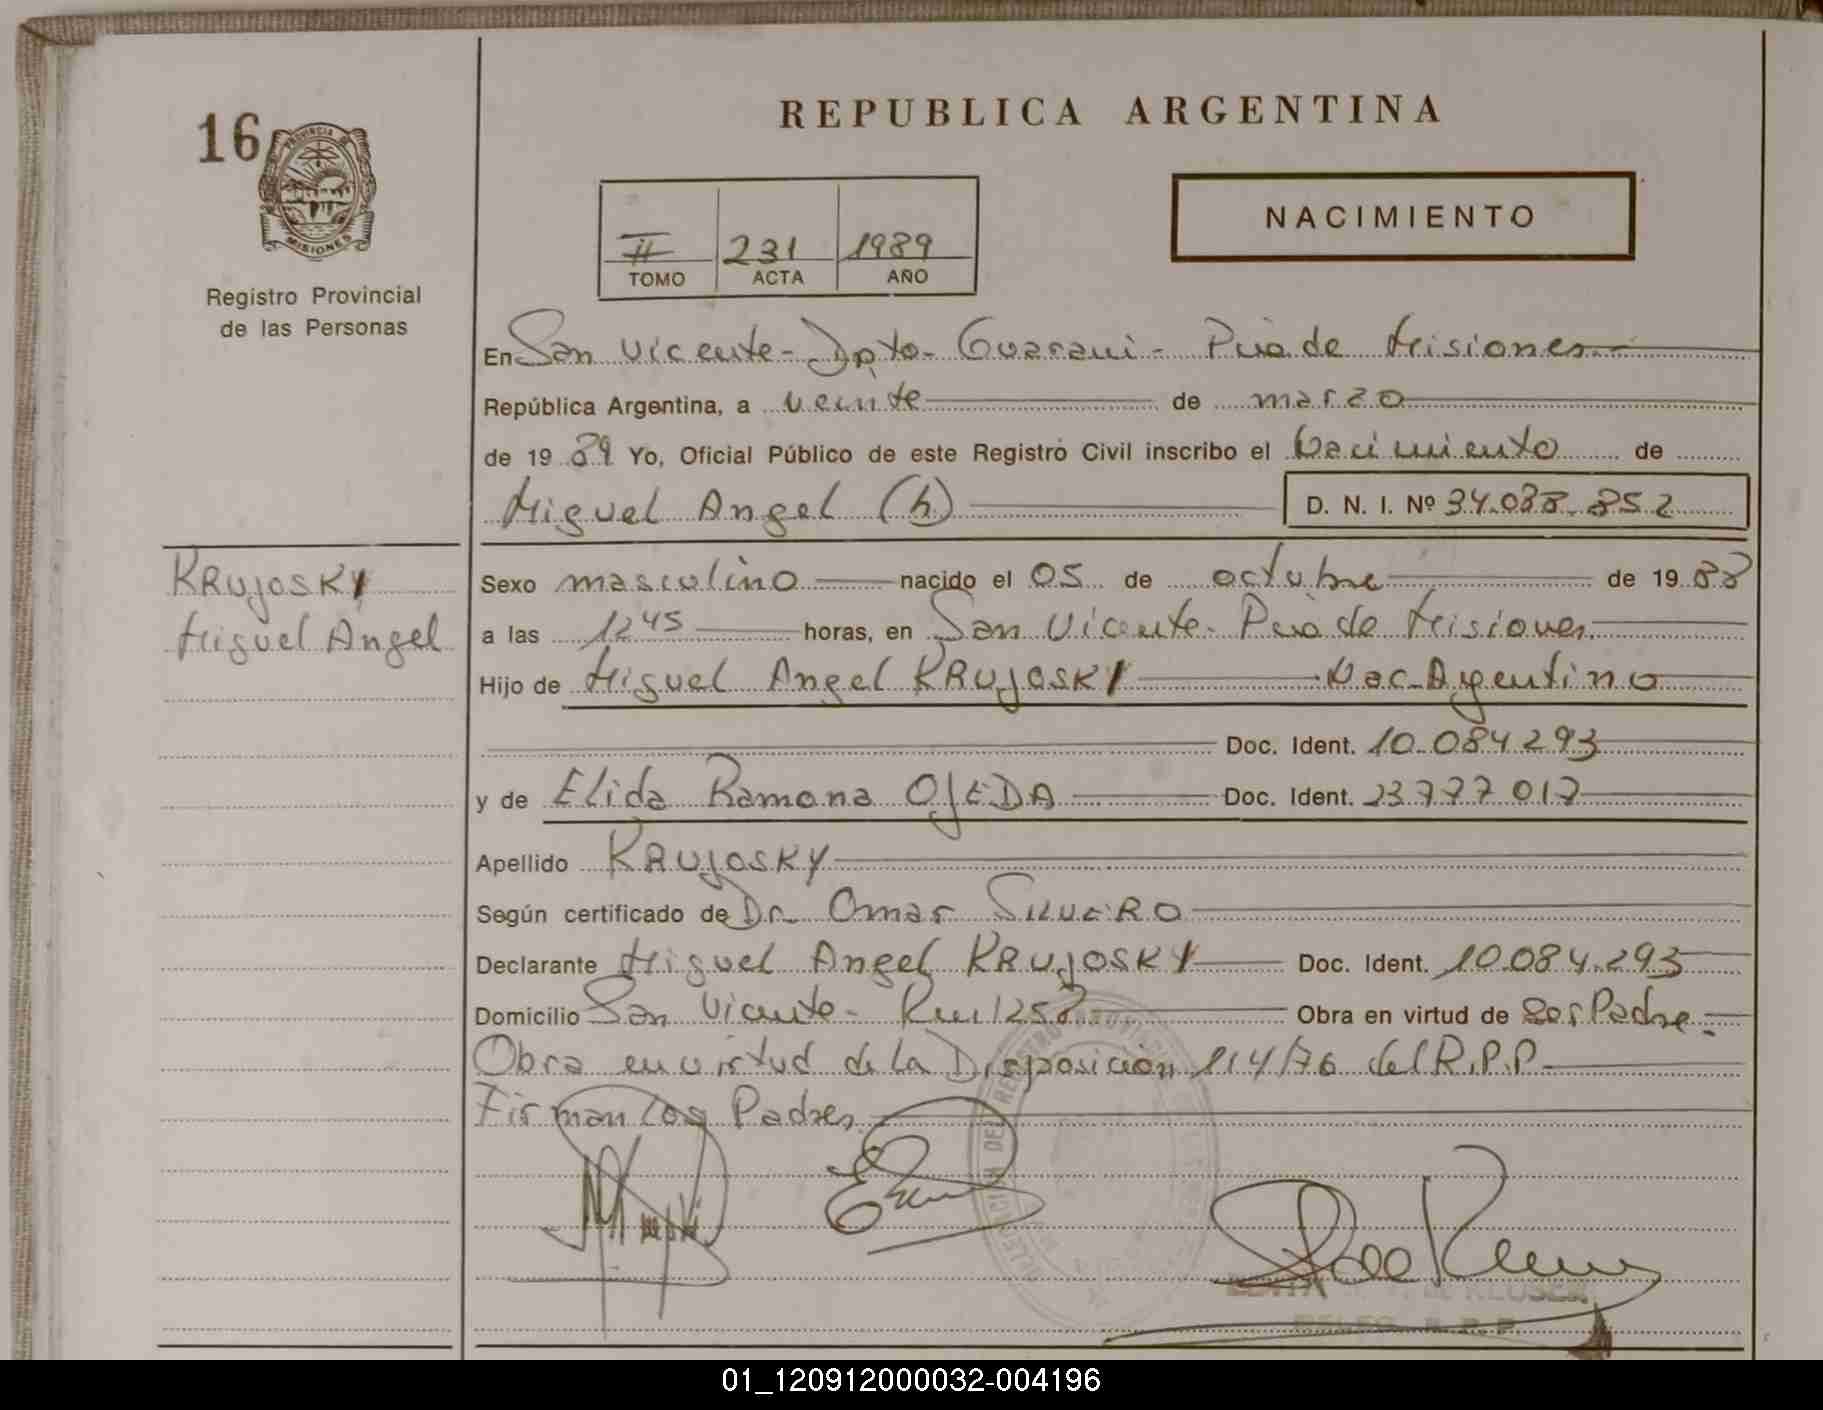 REPUBLICA ARGENTINA
16
PROVINCIA DE
MISIONES
Registro Provincial
de las Personas
II 231 1989
TOMO ACTA AÑO
NACIMIENTO
En San Vicente - Dpto - Guarani - Pcia de Misiones
República Argentina, a veinte de marzo
de 19 89 Yo, Oficial Público de este Registro Civil inscribo el Nacimiento de
Miguel Angel (h) D. N. I. Nº 34.088.852
KRUJOSKY
Miguel Angel
Sexo masculino nacido el 05 de octubre de 19 88
a las 12 45 horas, en San Vicente - Pcia de Misiones
Hijo de Miguel Angel KRUJOSKY Nac. Argentino
Doc. Ident. 10.084.293
y de Elida Ramona OJEDA Doc. Ident. 23.777.017
Apellido KRUJOSKY
Según certificado de Dr. Omar SILVERO
Declarante Miguel Angel KRUJOSKY Doc. Ident. 10.084.293
Domicilio San Vicente - Km 1258 Obra en virtud de ser Padre.
Obra en virtud de la Disposición 114/76 del R.P.P.
Firman los Padres.
01_120912000032-004196